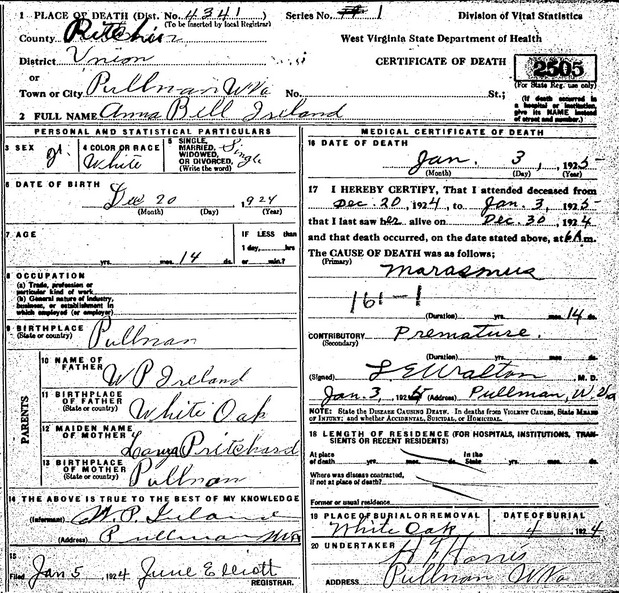 1 PLACE OF DEATH (Dist. No. 4341 Series No. 1 Division of Vital Statistics
(To be inserted by local Registrar)
County Ritchie West Virginia State Department of Health
District Union CERTIFICATE OF DEATH 2505
or (For State Reg. use only)
Town or City Pullman W Va No. St.;
(If death occurred in a hospital or institution, give its NAME instead of street and number.)
2 FULL NAME Anna Bell Ireland
PERSONAL AND STATISTICAL PARTICULARS
3 SEX
4 COLOR OR RACE White
5 SINGLE, MARRIED, WIDOWED, OR DIVORCED, (Write the word) Single
6 DATE OF BIRTH
Dec 20 , 1924
(Month) (Day) (Year)
7 AGE
yrs. mos. 14 ds.
IF LESS than
1 day, hrs
or min.?
8 OCCUPATION
(a) Trade, profession or
particular kind of work
(b) General nature of industry,
business, or establishment in
which employed (or employer)
9 BIRTHPLACE
(State or country) Pullman
PARENTS
10 NAME OF
FATHER W P Ireland
11 BIRTHPLACE
OF FATHER
(State or country) White Oak
12 MAIDEN NAME
OF MOTHER Pritchard
13 BIRTHPLACE
OF MOTHER
(State or country) Pullman
14 THE ABOVE IS TRUE TO THE BEST OF MY KNOWLEDGE
(Informant) W. P. Ireland
(Address) Pullman WVa
15
Filed Jan 5 , 1924 June Elliott
REGISTRAR.
MEDICAL CERTIFICATE OF DEATH
16 DATE OF DEATH
Jan. 3 , 1925
(Month) (Day) (Year)
17 I HEREBY CERTIFY, That I attended deceased from
Dec. 20 , 1924, to Jan. 3, 1925
that I last saw her alive on Dec. 30 1924
and that death occurred, on the date stated above, at 6 A m.
The CAUSE OF DEATH was as follows;
(Primary) Marasmus
161-1
(Duration) yrs. mos. 14 ds.
CONTRIBUTORY Premature.
(Secondary)
(Duration) yrs. mos. ds.
(Signed) L E Walton M. D.
Jan. 3, 1925 (Address) Pullman, W. Va
NOTE: State the DISEASE CAUSING DEATH. In deaths from VIOLENT CAUSES, State MEANS
OF INJURY; and whether ACCIDENTAL, SUICIDAL, or HOMICIDAL.
18 LENGTH OF RESIDENCE (FOR HOSPITALS, INSTITUTIONS, TRANSIENTS OR RECENT RESIDENTS)
At place of death yrs. mos. ds. In the State yrs. mos. ds.
Where was disease contracted,
if not at place of death?
Former or usual residence
19 PLACE OF BURIAL OR REMOVAL DATE OF BURIAL
White Oak 4 1924
20 UNDERTAKER Harris
ADDRESS Pullman W Va